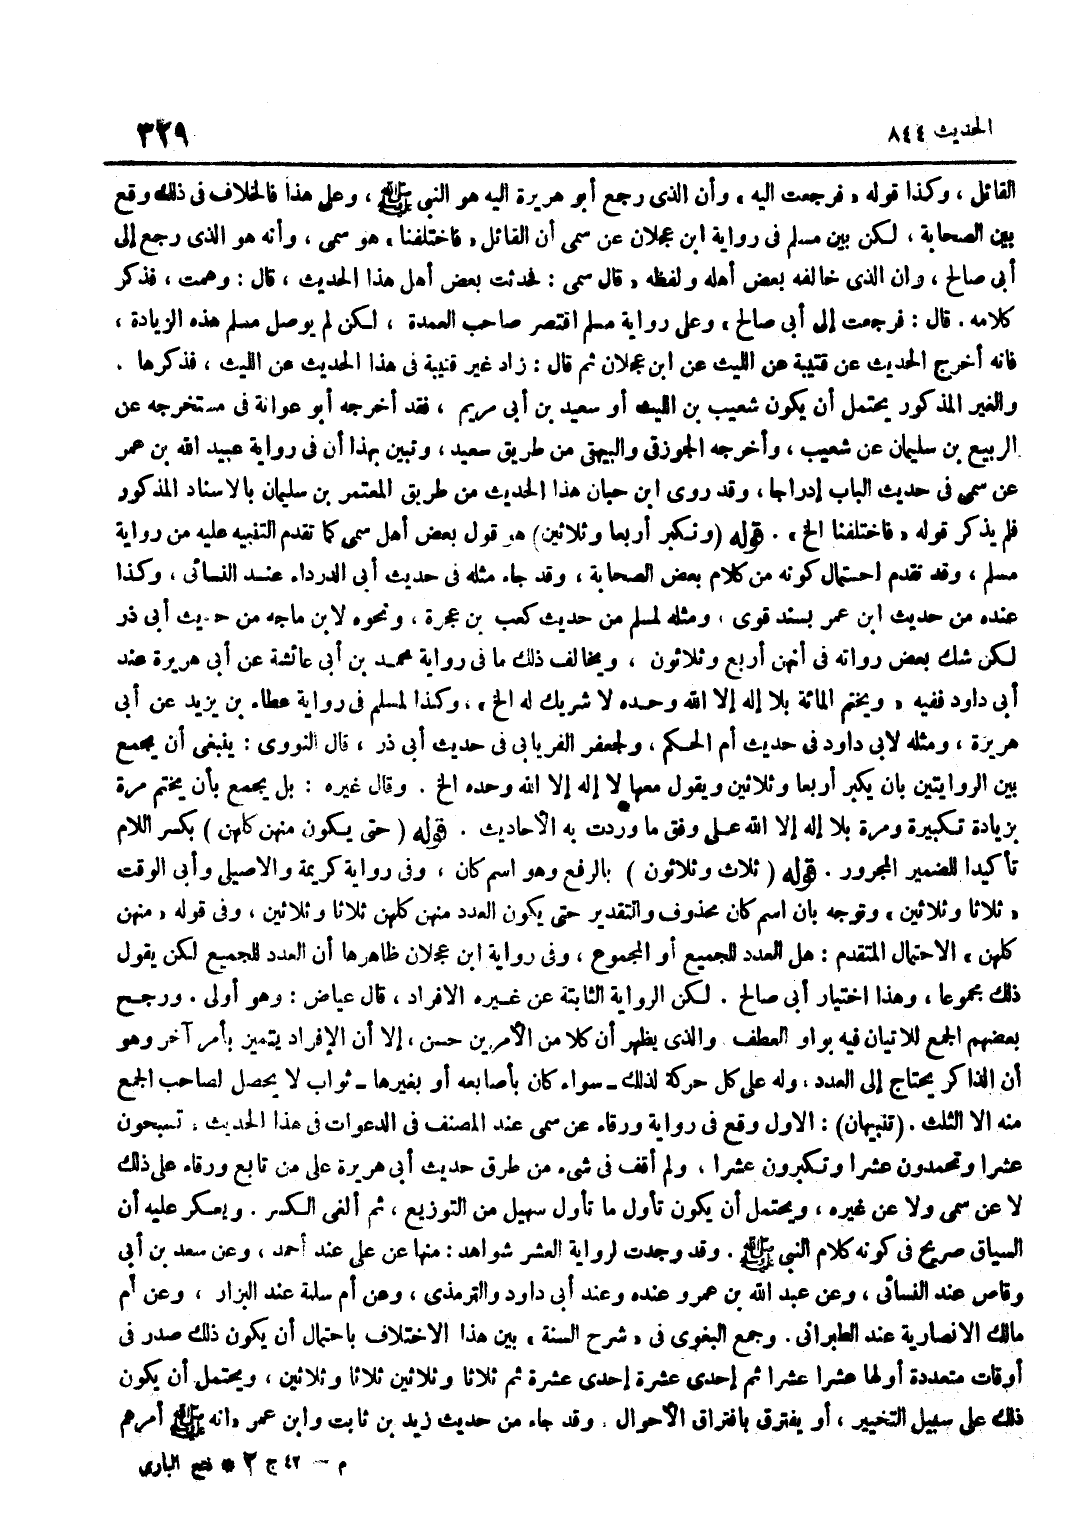 الحديث ٨٤٤
٣٢٩
القائل ، وكذا قوله « فرجعت اليه » وأن الذى رجع أبو هريرة اليه هو النبى ﷺ ، وعلى هذا فالخلاف فى ذلك وقع
بين الصحابة ، لكن بين مسلم فى رواية ابن عجلان عن سمى أن القائل « فاختلفنا » هو سمى ، وأنه هو الذى رجع إلى
أبى صالح ، وان الذى خالفه بعض أهله ولفظه « قال سمى : فحدثت بعض أهل هذا الحديث ، قال : وهمت ، فذكر
كلامه . قال : فرجعت إلى أبى صالح » وعلى رواية مسلم اقتصر صاحب العمدة ، لكن لم يوصل مسلم هذه الزيادة ،
فانه أخرج الحديث عن قتيبة عن الليث عن ابن عجلان ثم قال : زاد غير قتيبة فى هذا الحديث عن الليث ، فذكرها .
والغير المذكور يحتمل أن يكون شعيب بن الليث أو سعيد بن أبى مريم ، فقد أخرجه أبو عوانة فى مستخرجه عن
الربيع بن سليمان عن شعيب ، وأخرجه الجوزقى والبيهقى من طريق سعيد ، وتبين بهذا أن فى رواية عبيد الله بن عمر
عن سمى فى حديث الباب إدراجا ، وقد روى ابن حبان هذا الحديث من طريق المعتمر بن سليمان بالاسناد المذكور
فلم يذكر قوله « فاختلفنا الخ » . قوله (ونكبر أربعا وثلاثين) هو قول بعض أهل سمى كما تقدم التنبيه عليه من رواية
مسلم ، وقد تقدم احتمال كونه من كلام بعض الصحابة ، وقد جاء مثله فى حديث أبى الدرداء عند النسائى ، وكذا
عنده من حديث ابن عمر بسند قوى ، ومثله لمسلم من حديث كعب بن عجرة ، ونحوه لابن ماجه من حديث أبى ذر
لكن شك بعض رواته فى أنهن أربع وثلاثون ، ويخالف ذلك ما فى رواية محمد بن أبى عائشة عن أبى هريرة عند
أبى داود ففيه « ويختم المائة بلا إله إلا الله وحده لا شريك له الخ » ، وكذا لمسلم فى رواية عطاء بن يزيد عن أبى
هريرة ، ومثله لابى داود فى حديث أم الحكم ، ولجعفر الفريابى فى حديث أبى ذر ، قال النووى : ينبغى أن يجمع
بين الروايتين بان يكبر أربعا وثلاثين ويقول معها لا إله إلا الله وحده الخ . وقال غيره : بل يجمع بأن يختم مرة
بزيادة تكبيرة ومرة بلا إله إلا الله على وفق ما وردت به الأحاديث . قوله ( حتى يكون منهن كلهن ) بكسر اللام
تأكيدا للضمير المجرور . قوله ( ثلاث وثلاثون ) بالرفع وهو اسم كان ، وفى رواية كريمة والاصيلى وأبى الوقت
« ثلاثا وثلاثين » وتوجه بان اسم كان محذوف والتقدير حتى يكون العدد منهن كلهن ثلاثا وثلاثين ، وفى قوله « منهن
كلهن » الاحتمال المتقدم : هل العدد للجميع أو المجموع ، وفى رواية ابن عجلان ظاهرها أن العدد للجميع لكن يقول
ذلك مجموعا ، وهذا اختيار أبى صالح . لكن الرواية الثابتة عن غيره الافراد ، قال عياض : وهو أولى . ورجح
بعضهم الجمع للاتيان فيه بواو العطف . والذى يظهر أن كلا من الأمرين حسن ، إلا أن الإفراد يتميز بأمر آخر وهو
أن الذاكر يحتاج إلى العدد ، وله على كل حركة لذلك - سواء كان بأصابعه أو بغيرها - ثواب لا يحصل لصاحب الجمع
منه الا الثلث . (تنبيهان) : الاول وقع فى رواية ورقاء عن سمى عند المصنف فى الدعوات فى هذا الحديث ، تسبحون
عشرا وتحمدون عشرا وتكبرون عشرا ، ولم أقف فى شىء من طرق حديث أبى هريرة على من تابع ورقاء على ذلك
لا عن سمى ولا عن غيره ، ويحتمل أن يكون تأول ما تأول سهيل من التوزيع ، ثم ألغى الكسر . ويعكر عليه أن
السياق صريح فى كونه كلام النبى ﷺ . وقد وجدت لرواية العشر شواهد : منها عن على عند أحمد ، وعن سعد بن أبى
وقاص عند النسائى ، وعن عبد الله بن عمرو عنده وعند أبى داود والترمذى ، وعن أم سلمة عند البزار ، وعن أم
مالك الانصارية عند الطبرانى . وجمع البغوى فى « شرح السنة » بين هذا الاختلاف باحتمال أن يكون ذلك صدر فى
أوقات متعددة أولها عشرا عشرا ثم إحدى عشرة إحدى عشرة ثم ثلاثا وثلاثين ثلاثا وثلاثين ، ويحتمل أن يكون
ذلك على سبيل التخيير ، أو يفترق بافتراق الأحوال . وقد جاء من حديث زيد بن ثابت وابن عمر « انه ﷺ أمرهم
م — ٤٢ ج ٢ * فتح البارى